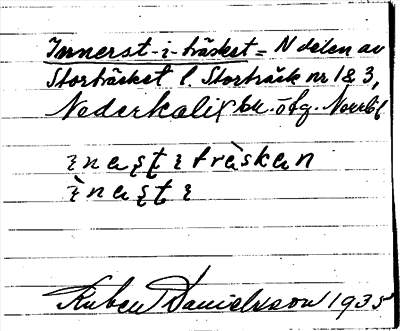 Innerst-i-träsket = N delen av
Storträsket l. Storträsk nr 1 & 3,
Nederkalix
ɩnaʂʈɩtrὰskan
ɩ̀naʂʈɩ
Ruben Danielsson 1935